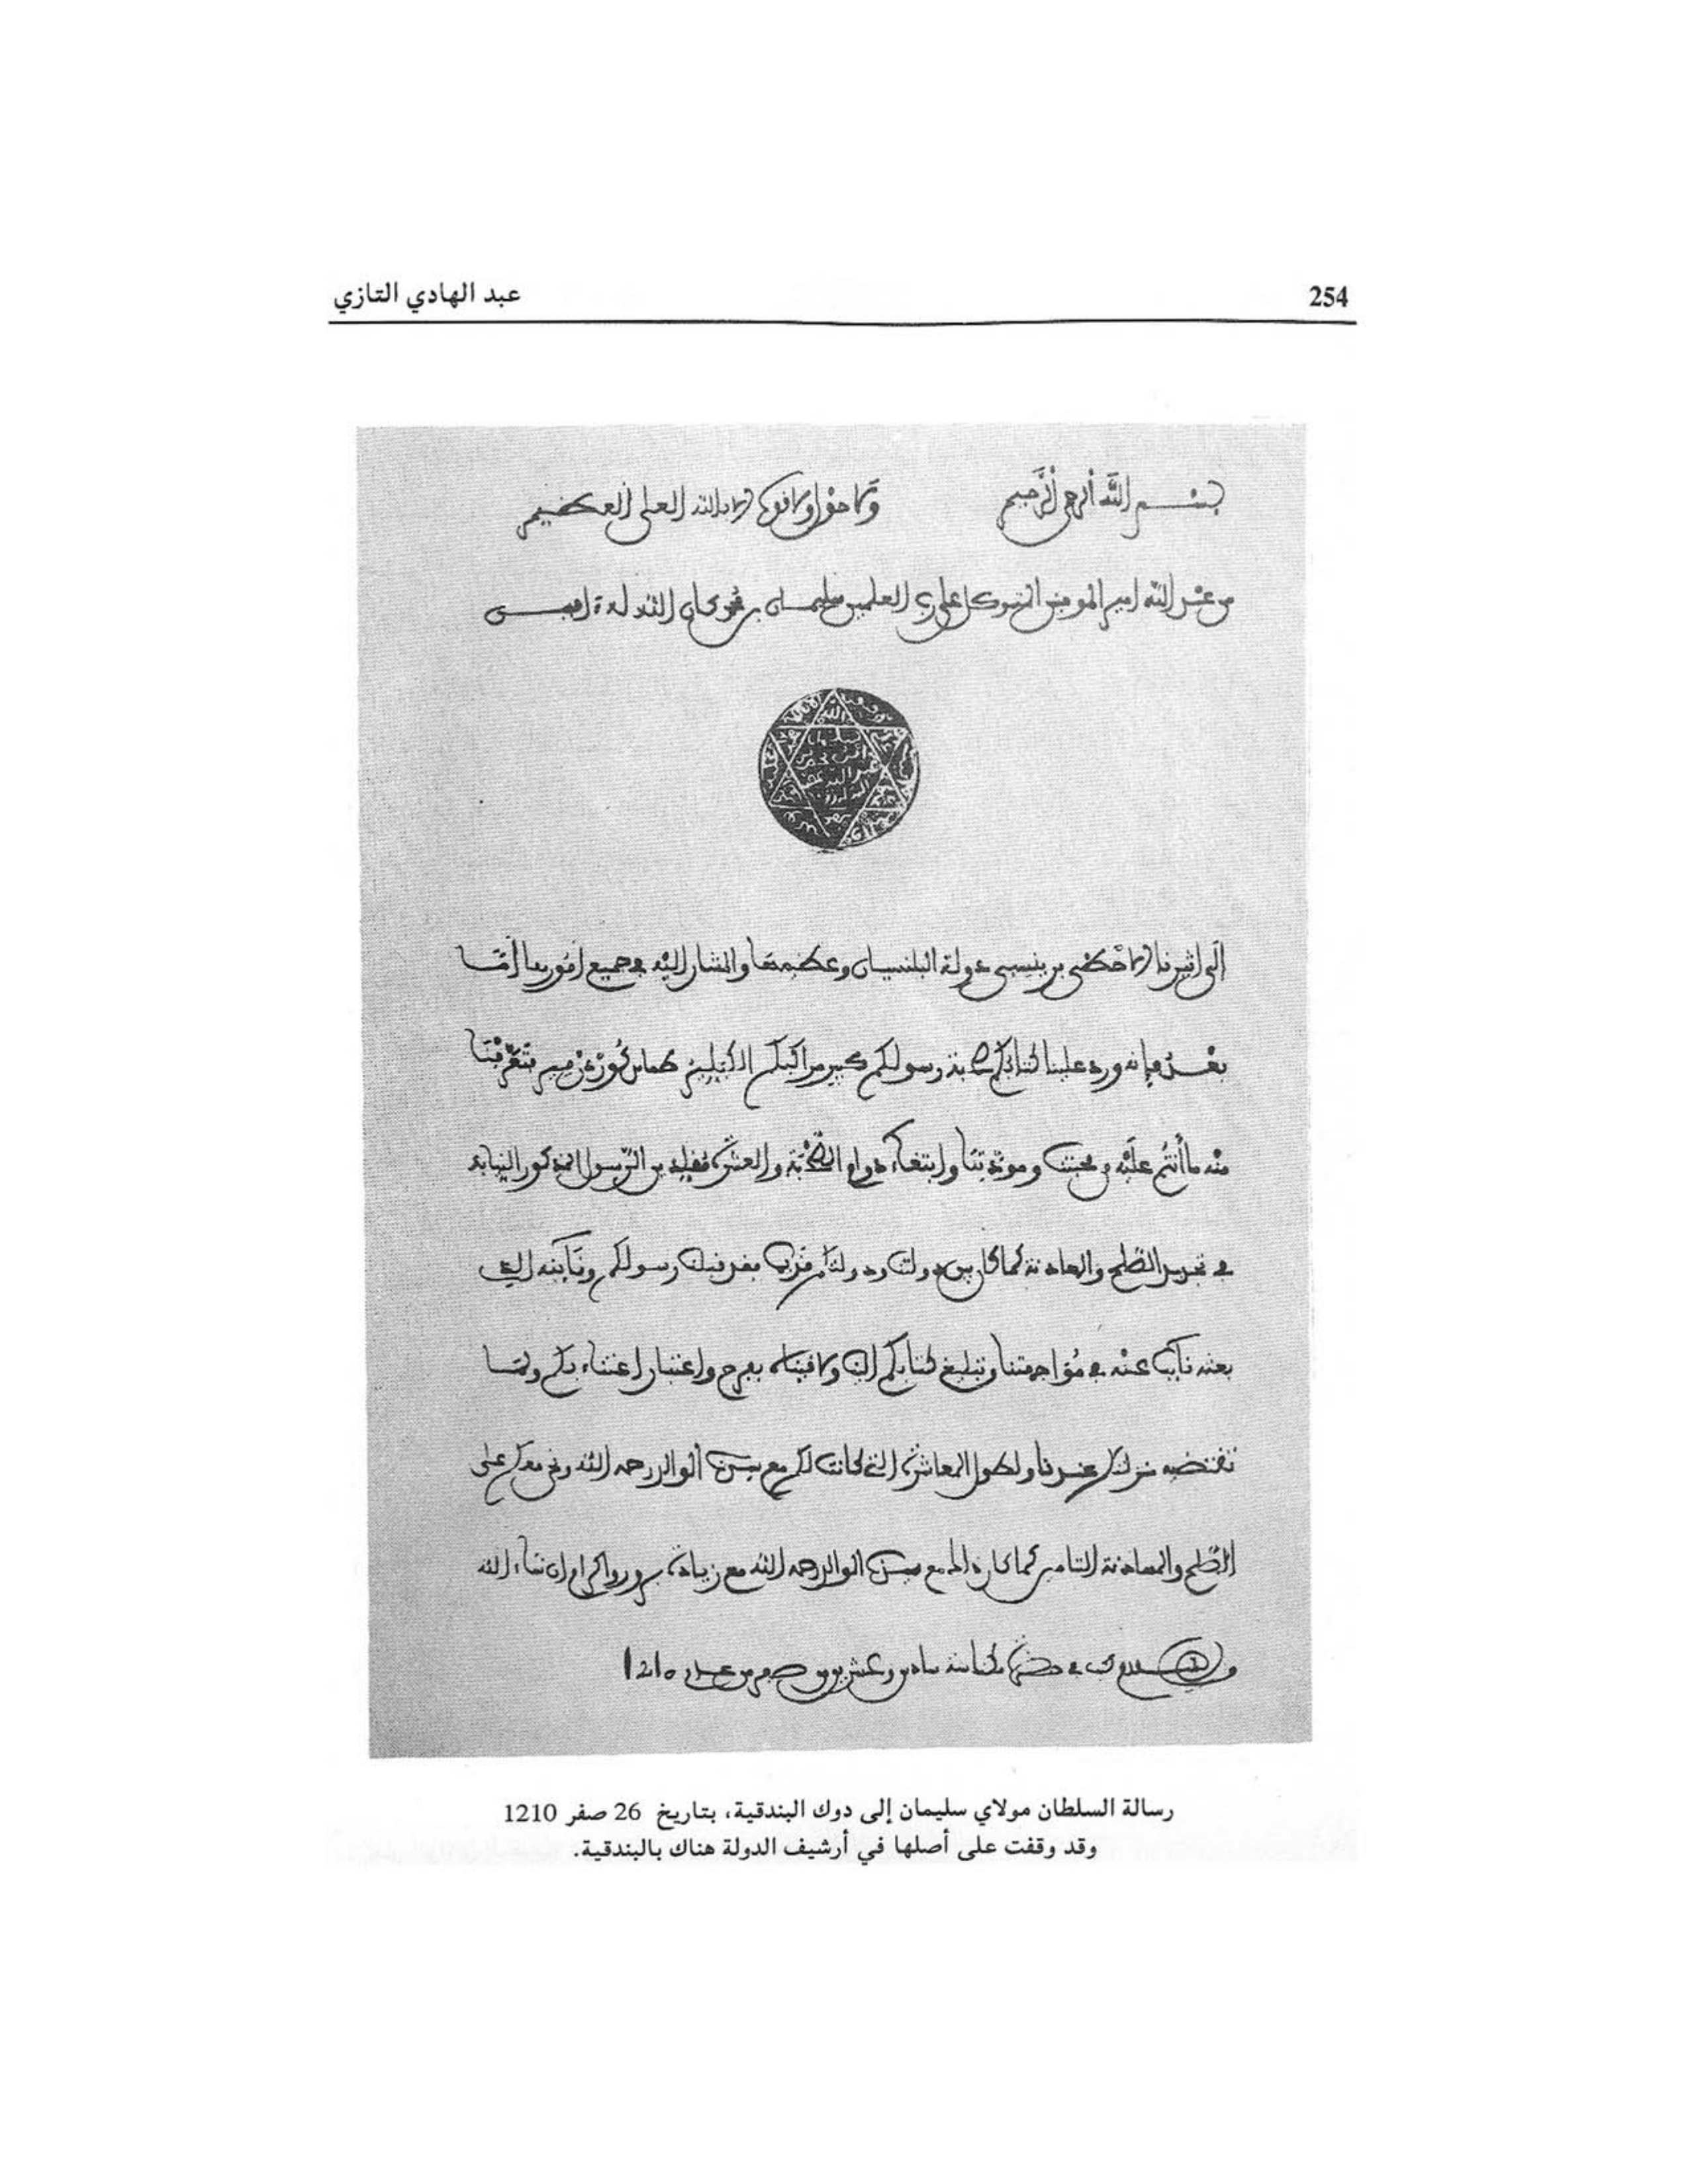 254
عبد الهادي التازي
بسم الله الرحمن الرحيم ولا حول ولا قوة إلا بالله العلي العظيم
من عبد الله امير المومنين المتوكل على رب العلمين سليمان بن محمد كان الله له ءامين
الله
سليمان
إلى دولة البلنسيان وعظيمها والمشار إليه في جميع أمورها أما
بعد فإنه ورد علينا كتابكم صحبة رسولكم كبير مراكبكم
منه ما أنتم عليه من محبتنا ومودتنا وابتغاء دوام الصحبة والعشرة من الرسول المذكور النيابة
في تجديد الصلح والمهادنة كما كان بين دولتنا ودولتكم قبلنا رسولكم ونائبه الذي
بعثه نائبا عنه في مواجهتنا وتبليغ كتابكم إلينا ولاقيناه بفرح واعتبار اعتناء بكم ولما
تقتضيه منزلتكم عندنا ولطول المعاشرة التي كانت لكم مع سيدنا الوالد رحمه الله ونحن معكم على
الصلح والمهادنة التامين كما كان مع سيدنا الوالد رحمه الله مع زيادة سرور وإكرام إن شاء الله
والسلام كتب في مكناسة سادس وعشرين من صفر من عام 1210
رسالة السلطان مولاي سليمان إلى دوك البندقية، بتاريخ 26 صفر 1210
وقد وقفت على أصلها في أرشيف الدولة هناك بالبندقية.